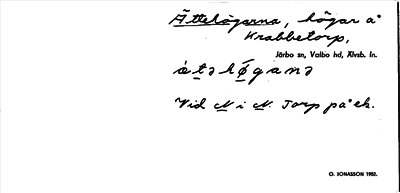 Ättehögarna, högar å
Krabbetorp,
Järbo sn, Valbo hd, Älvsb. ln.
àtəhøganə
Vid N i N. Torp på ek.
G. JONASSON 1952.